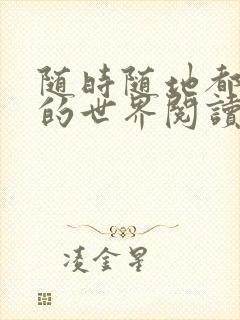 随時随地都
的世界閱讀
凌金星